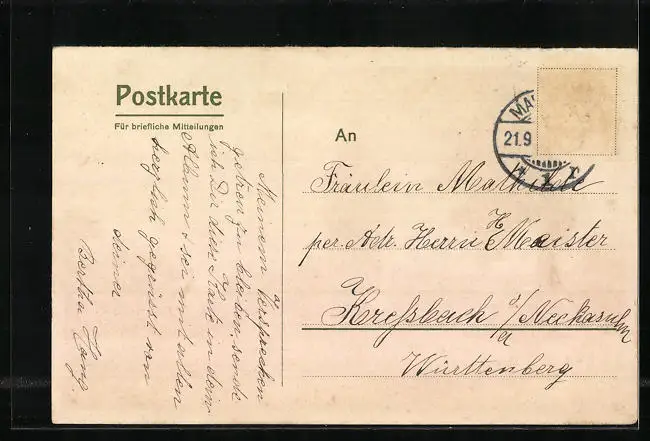 Postkarte
Für briefliche Mitteilungen
Meinem Versprechen
getreu zu bleiben sende
ich Dir diese Karte in dein
Album & sei mit allen
herzlich gegrüsst von
deiner
Bertha
An
Fräulein Mathilde
per Adr. Herrn H. Maister
Kreßbach a/d Neckarsulm
Württenberg
MA
21.9